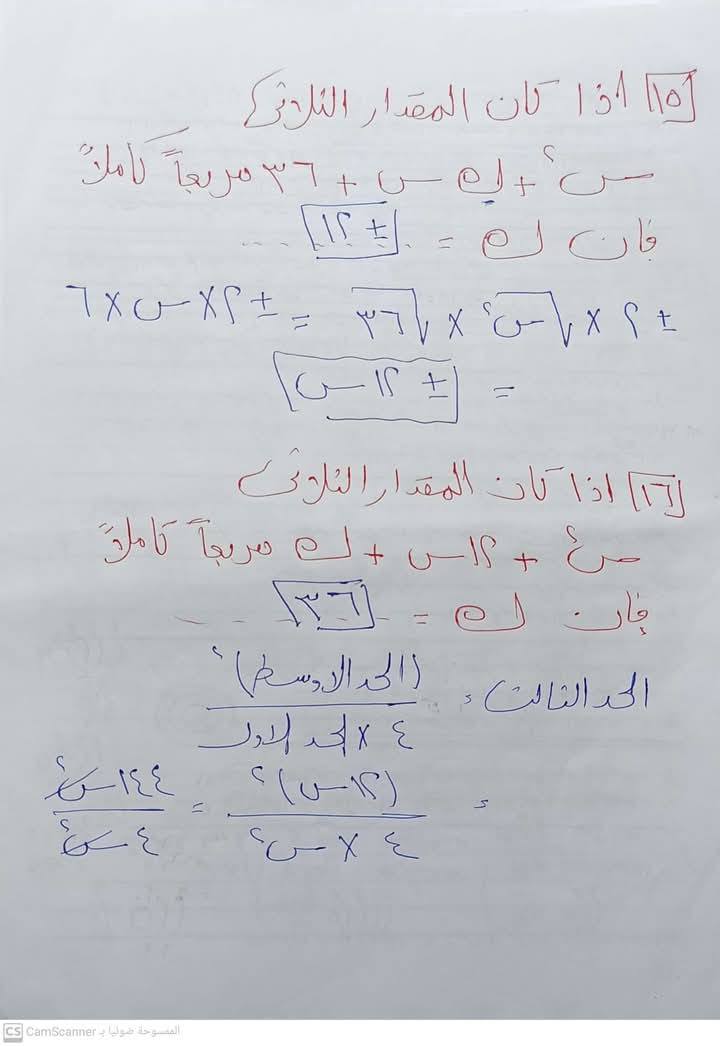 ١٥ اذا كان المقدار الثلاثى
س٢ + ك س + ٣٦ مربعاً كاملاً
فان ك = ± ١٢ ....
± ٢ × √س٢ × √٣٦ = ± ٢ × س × ٦
= ± ١٢ س
١٦ اذا كان المقدار الثلاثى
س٢ + ١٢س + ك مربعاً كاملاً
فإن ك = ٣٦ ....
الحد الثالث = (الحد الاوسط)٢ / ٤ × الحد الاول
= (١٢س)٢ / ٤ × س٢ = ١٤٤س٢ / ٤س٢
CS CamScanner الممسوحة ضوئيا بـ